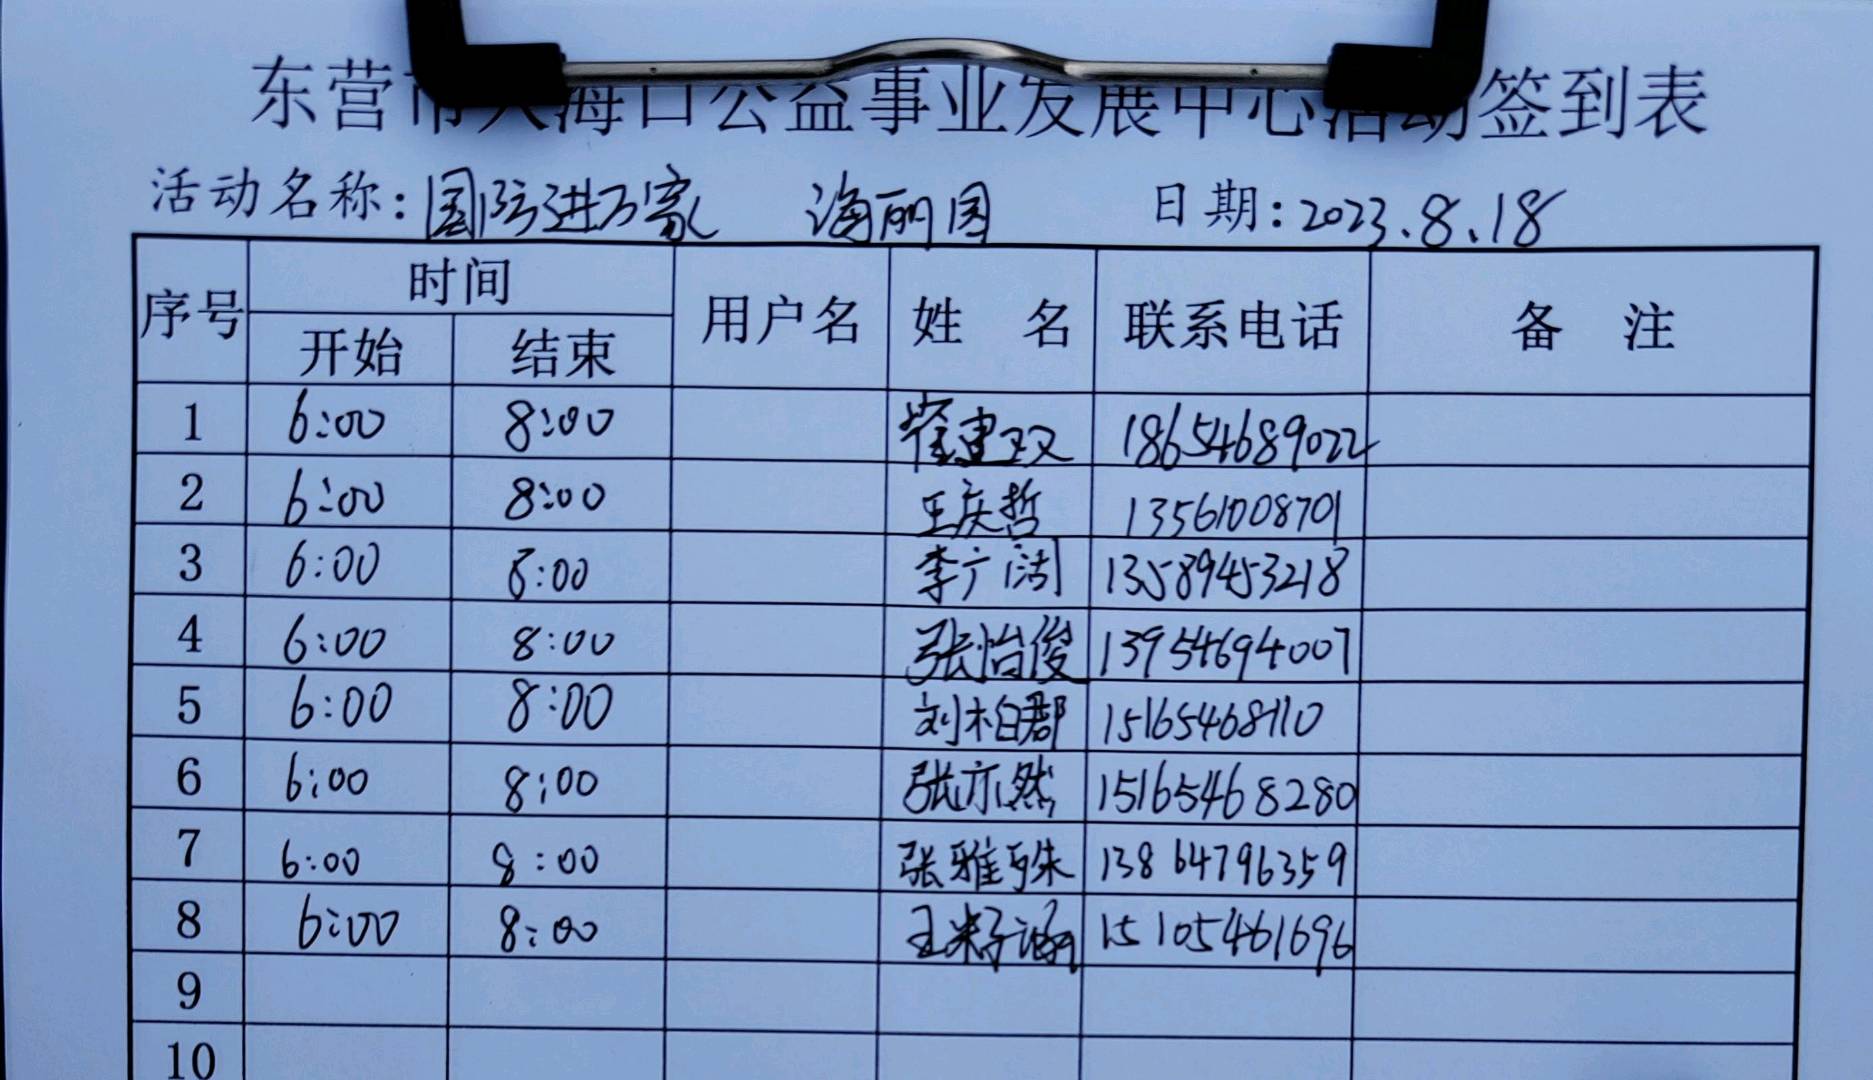 东营市大海口公益事业发展中心活动签到表
活动名称：国防进万家 海丽园 日期：2023.8.18
序号 时间 用户名 姓 名 联系电话 备 注
开始 结束
1 6:00 8:00 崔建双 18654689022
2 6:00 8:00 王庆哲 13561008701
3 6:00 8:00 李广阔 13589453218
4 6:00 8:00 张怡俊 13954694007
5 6:00 8:00 刘柏郡 15165468110
6 6:00 8:00 张亦然 15165468280
7 6:00 8:00 张雅殊 13864796359
8 6:00 8:00 王籽涵 15105461696
9
10